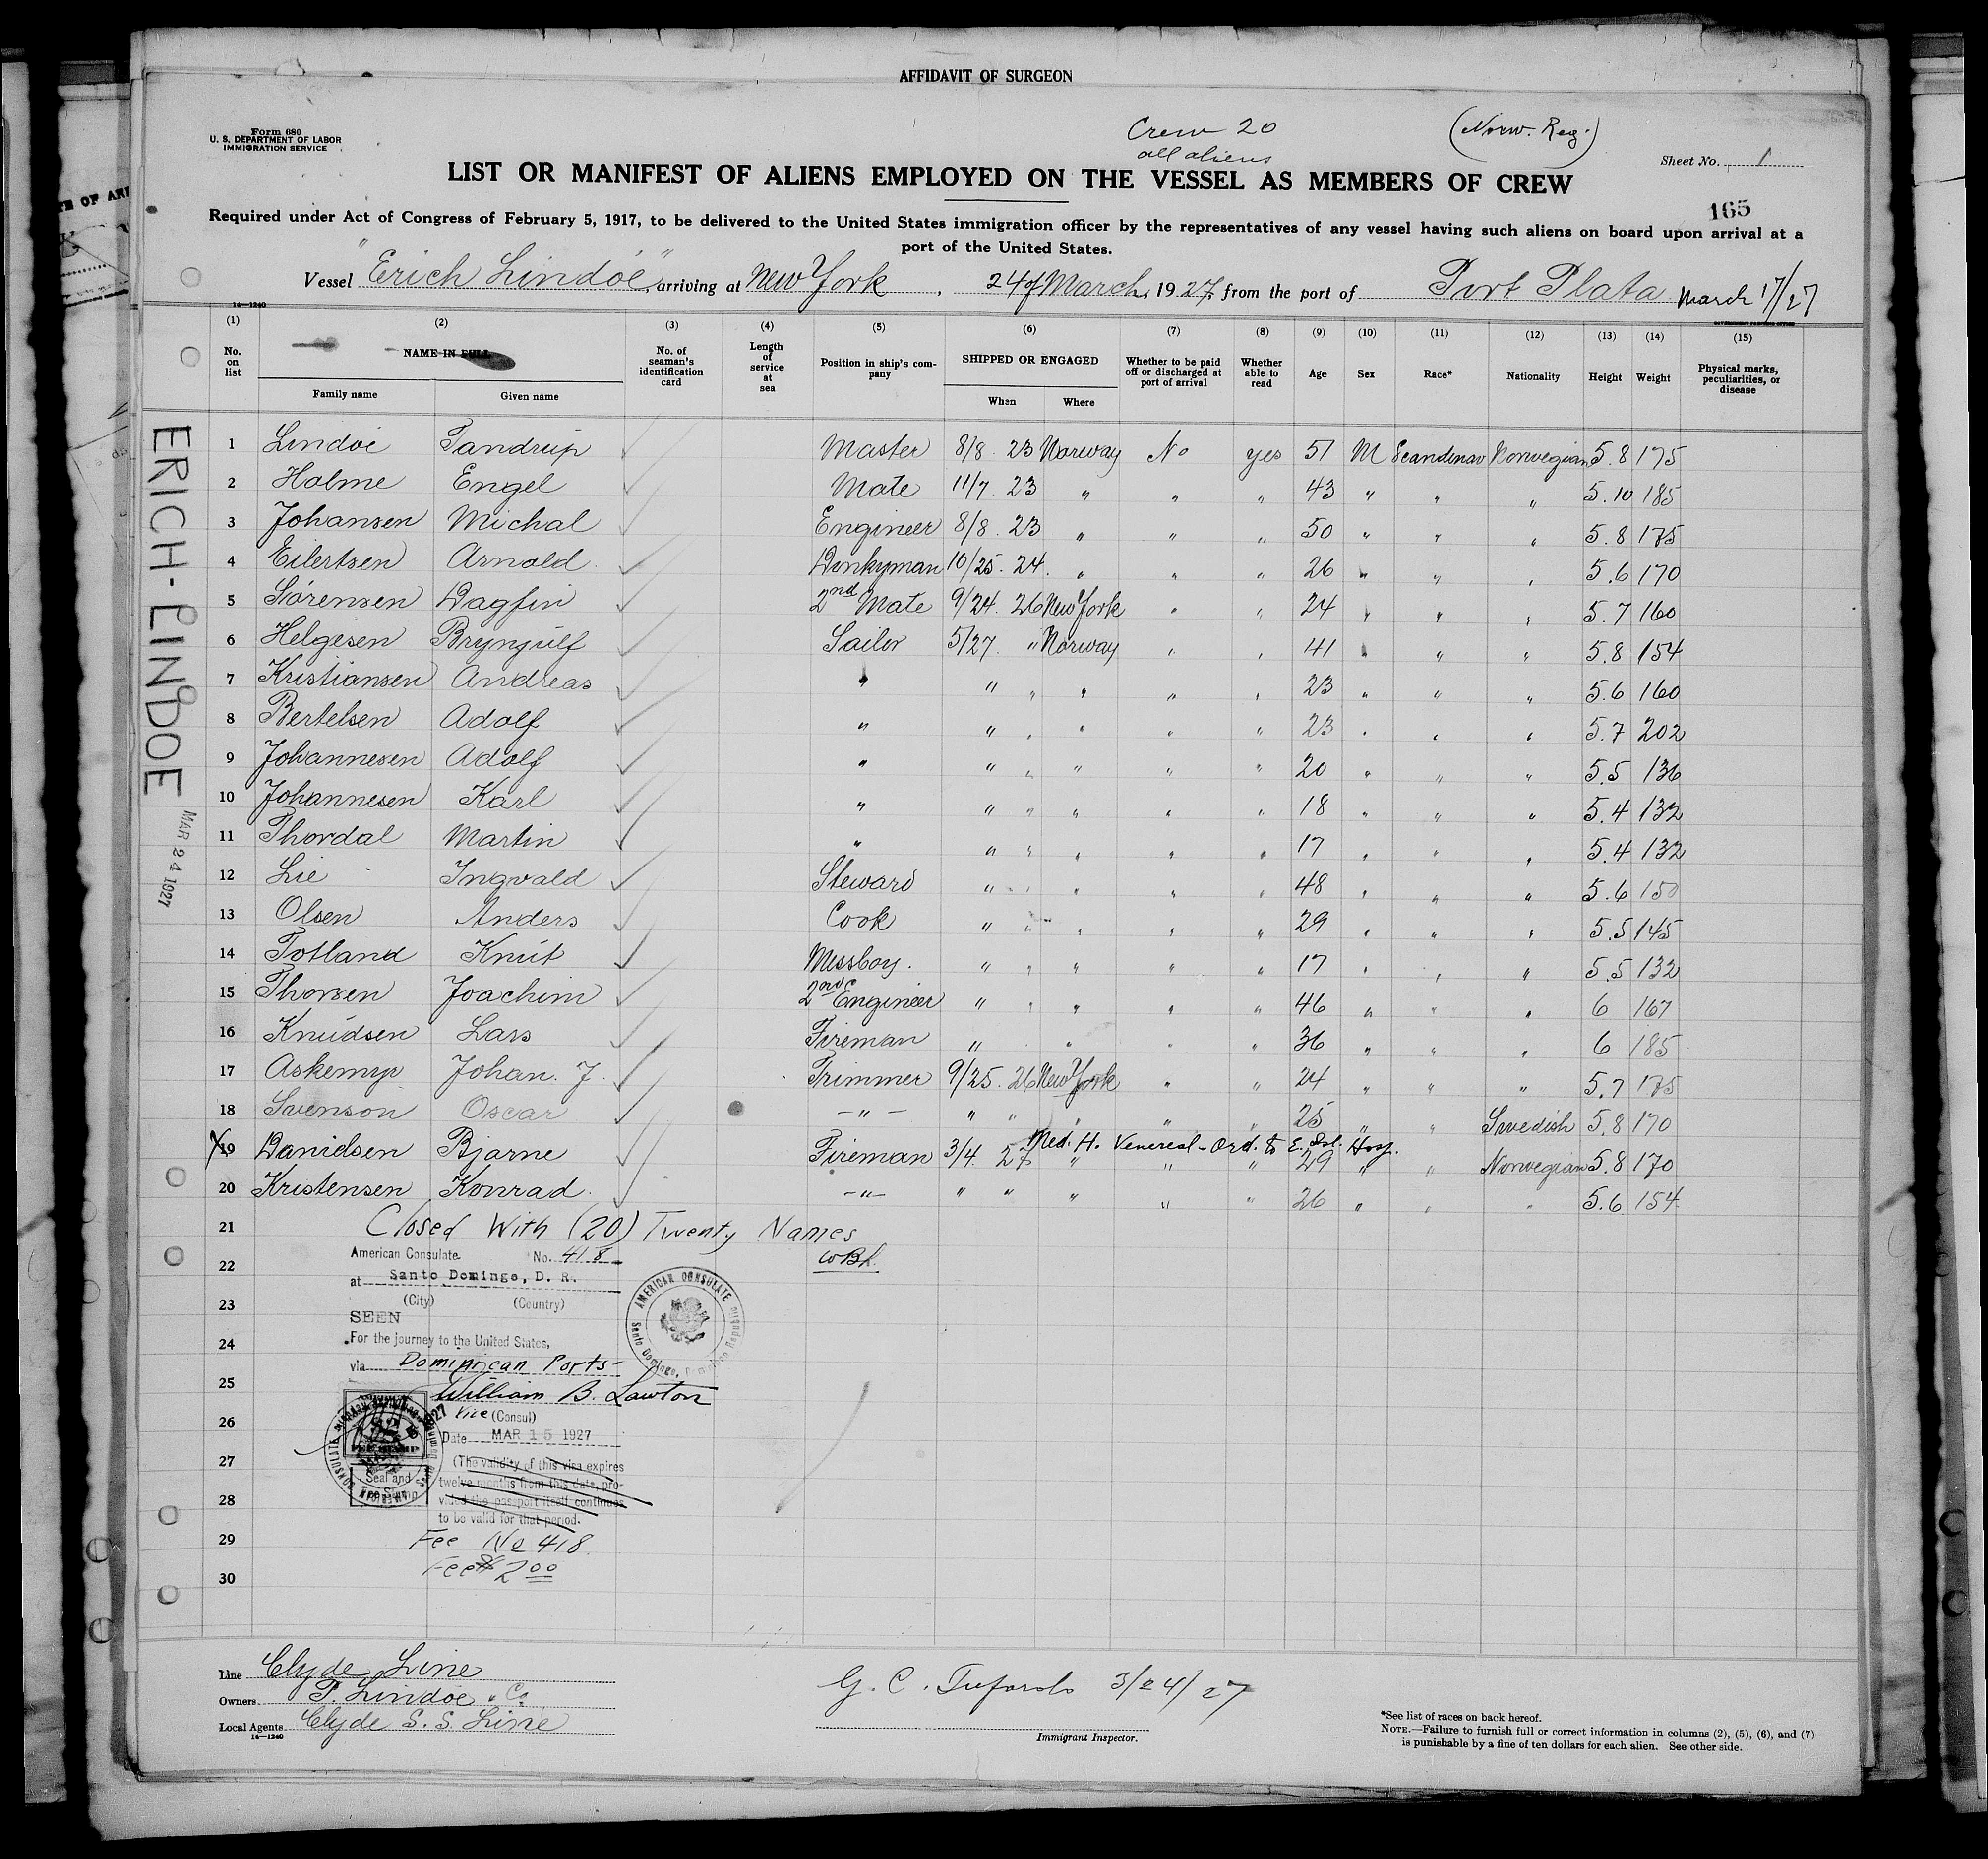 AFFIDAVIT OF SURGEON
Form 680
U. S. DEPARTMENT OF LABOR
IMMIGRATION SERVICE
Crew 20
all aliens
(Norw. Reg.)
Sheet No. 1
LIST OR MANIFEST OF ALIENS EMPLOYED ON THE VESSEL AS MEMBERS OF CREW
165
Required under Act of Congress of February 5, 1917, to be delivered to the United States immigration officer by the representatives of any vessel having such aliens on board upon arrival at a
port of the United States.
Vessel "Erich Lindöe", arriving at New York, 24 of March, 1927, from the port of Port Plata March 17/27
14—1240
(1) (2) (3) (4) (5) (6) (7) (8) (9) (10) (11) (12) (13) (14) (15)
No. on list
NAME IN FULL
Family name Given name
No. of seaman's identification card
Length of service at sea
Position in ship's company
SHIPPED OR ENGAGED
When Where
Whether to be paid off or discharged at port of arrival
Whether able to read
Age Sex Race* Nationality Height Weight
Physical marks, peculiarities, or disease
ERICH-LINDOE
MAR 24 1927
1 Lindöe Tandrup Master 8/8 23 Norway No yes 51 M Scandinav Norwegian 5.8 175
2 Holme Engel Mate 11/7 23 " " " 43 " " " 5.10 185
3 Johansen Michal Engineer 8/8 23 " " " 50 " " " 5.8 175
4 Eilertsen Arnold Donkyman 10/25 24 " " " 26 " " " 5.6 170
5 Sörensen Dagfin 2nd Mate 9/24 26 New York " " 24 " " " 5.7 160
6 Helgesen Brynjulf Sailor 5/27 " Norway " " 41 " " " 5.8 154
7 Kristiansen Andreas " " " " " " 23 " " " 5.6 160
8 Bertelsen Adolf " " " " " " 23 " " " 5.7 202
9 Johannesen Adolf " " " " " " 20 " " " 5.5 136
10 Johannesen Karl " " " " " " 18 " " " 5.4 132
11 Thordal Martin " " " " " " 17 " " " 5.4 132
12 Lie Ingvald Steward " " " " " 48 " " " 5.6 150
13 Olsen Anders Cook " " " " " 29 " " " 5.5 145
14 Totland Knut Messboy. " " " " " 17 " " " 5.5 132
15 Thorsen Joachim 2nd Engineer " " " " " 46 " " " 6 167
16 Knudsen Lars Fireman " " " " " 36 " " " 6 185
17 Askemyr Johan. J. Trimmer 9/25 26 New York " " 24 " " " 5.7 175
18 Svenson Oscar " " " " " " 25 " " Swedish 5.8 170
Med. H. Venereal - Ord. to E. Isl. Hosp.
X 19 Danielsen Bjarne Fireman 3/4 27 " " " 29 " " Norwegian 5.8 170
20 Kristensen Konrad " " " " " " 26 " " " 5.6 154
21 Closed With (20) Twenty Names
22 American Consulate No. 418
at Santo Domingo, D. R.
23 (City) (Country)
SEEN
24 For the journey to the United States,
via Dominican Ports-
AMERICAN CONSULATE
Santo Domingo, Dominican Republic
25 William B. Lawton
26 Vice (Consul)
Date MAR 15 1927
27 (The validity of this visa expires
twelve months from this date, pro-
28 vided the passport itself continues
to be valid for that period.
Seal and
Fee Stamp
29 Fee No 418
Fee $2 00
30
Line Clyde Line
Owners T. Lindöe & Co
Local Agents Clyde S. S. Line
14—1240
3/24/27
Immigrant Inspector.
*See list of races on back hereof.
NOTE.—Failure to furnish full or correct information in columns (2), (5), (6), and (7)
is punishable by a fine of ten dollars for each alien. See other side.